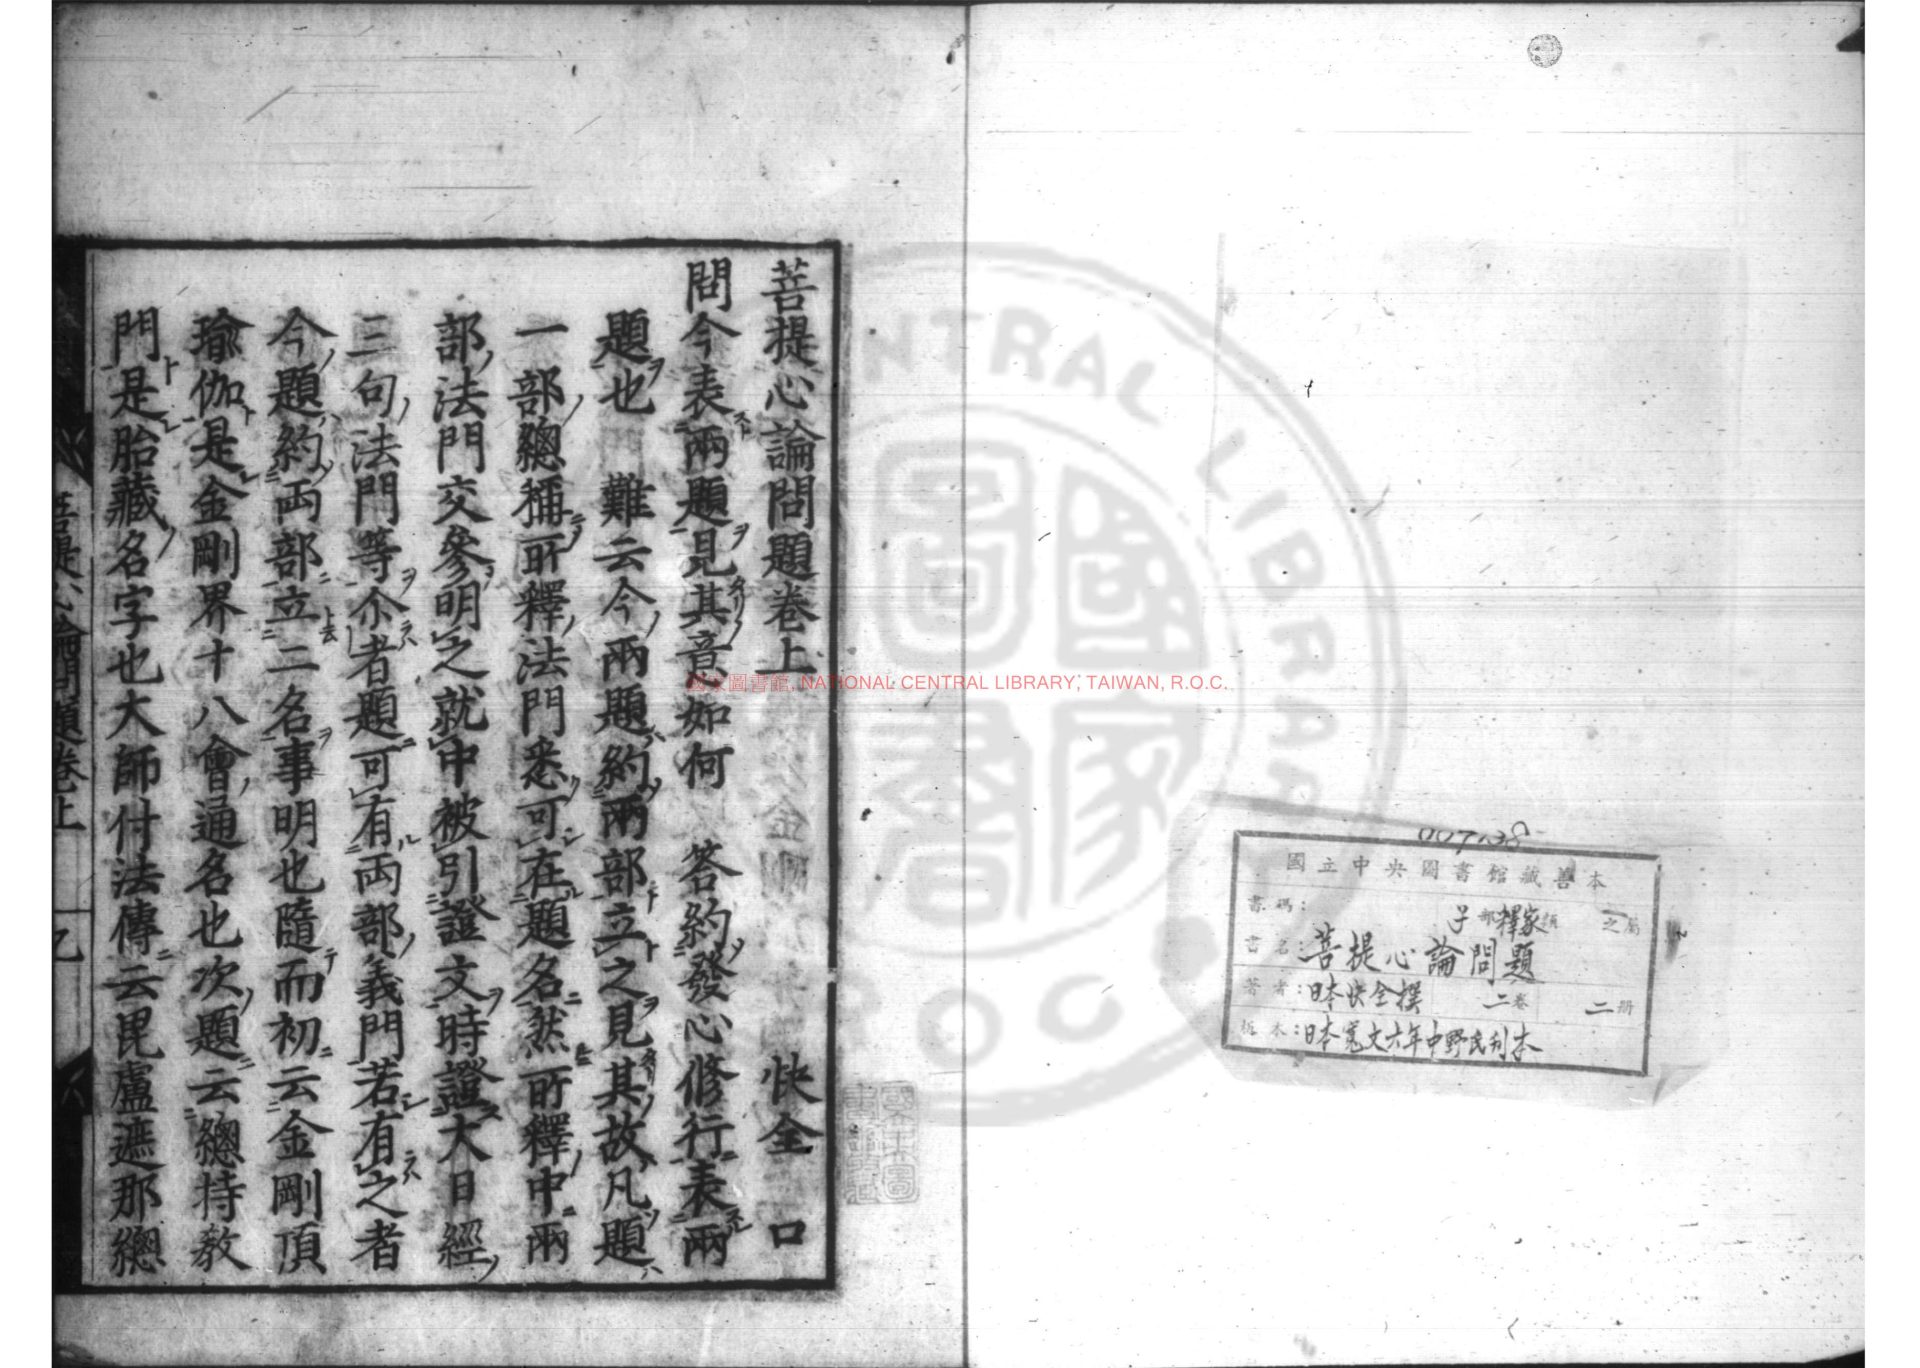 國立中央圖書館藏善本
書碼：
子部釋家類 之屬
書名：菩提心論問題
著者：日本快全撰 二卷 二册
板本：日本寬文六年中野氏刋本
菩提心論問題卷上 快全 口
問今表兩題見其意如何 答約發心修行表兩
題也 難云今兩題約兩部立之見其故凡題
一部總稱所釋法門悉可在題名然所釋中兩
部法門交參明之就中被引證文時證大日經
三句法門等尒者題可有両部義門若有之者
今題約両部立二名事明也隨而初云金剛頂
瑜伽是金剛界十八會通名也次題云總持教
門是胎藏名字也大師付法傳云毘盧遮那總
菩提心論問題卷上
國家圖書館, NATIONAL CENTRAL LIBRARY, TAIWAN, R.O.C.